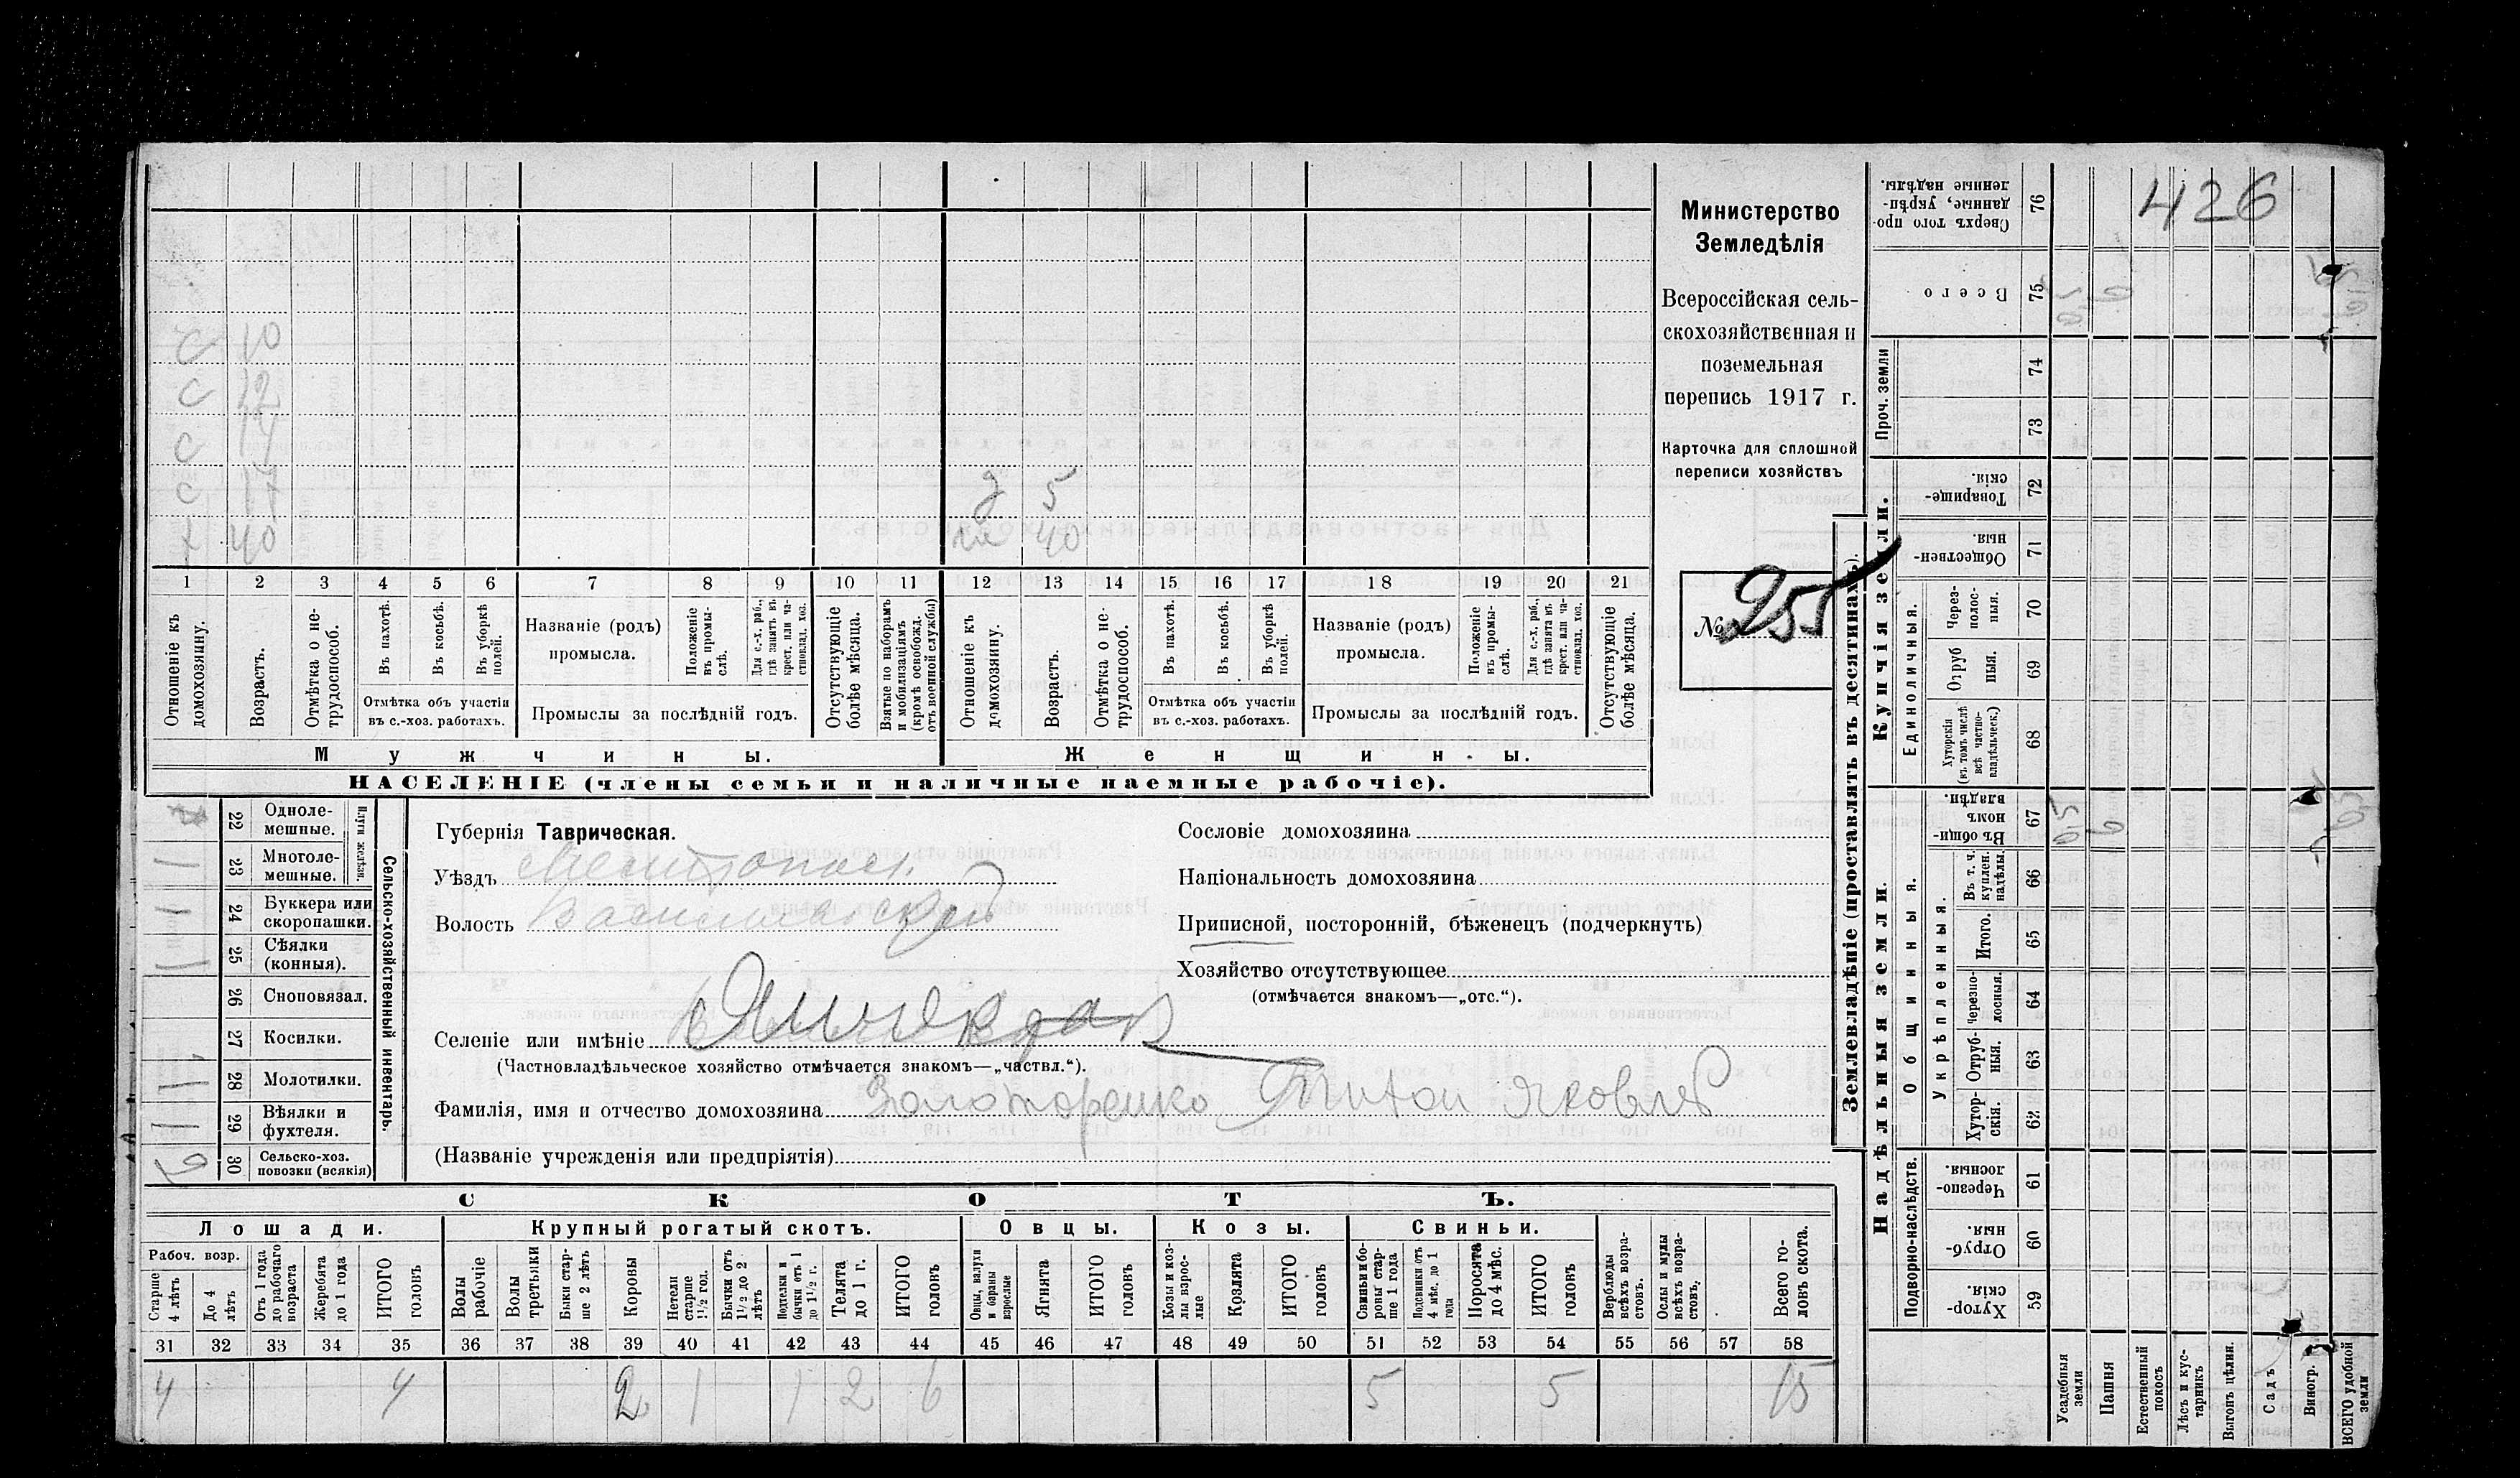 426
Министерство
Земледѣлія
Всероссійская сель-
скохозяйственная и
поземельная
перепись 1917 г.
Карточка для сплошной
переписи хозяйствъ
№ 255
с 10
с 12
с 14
с 17
х 40
д 5
ж 40
1 2 3 4 5 6 7 8 9 10 11 12 13 14 15 16 17 18 19 20 21
Отношеніе къ домохозяину.
Возрастъ.
Отмѣтка о не-трудоспособ.
Въ пахотѣ.
Въ косьбѣ.
Въ уборкѣ полей.
Отмѣтка объ участіи
въ с.-хоз. работахъ.
Названіе (родъ)
промысла.
Положеніе въ промы-слѣ.
Для с.-х. раб., гдѣ занятъ въ крест. или ча-стновлад. хоз.
Промыслы за послѣдній годъ.
Отсутствующіе болѣе мѣсяца.
Взятые по наборамъ и мобилизаціямъ (кромѣ освобожд. отъ военной службы)
Отношеніе къ домохозяину.
Возрастъ.
Отмѣтка о не-трудоспособ.
Въ пахотѣ.
Въ косьбѣ.
Въ уборкѣ полей.
Отмѣтка объ участіи
въ с.-хоз. работахъ.
Названіе (родъ)
промысла.
Положеніе въ промы-слѣ.
Для с.-х. раб., гдѣ занята въ крест. или ча-стновлад. хоз.
Промыслы за послѣдній годъ.
Отсутствующіе болѣе мѣсяца.
Мужчины.
Женщины.
НАСЕЛЕНІЕ (члены семьи и наличные наемные рабочіе).
Сельско-хозяйственный инвентарь.
Плуги желѣз.
22 Одноле-мешные.
1 23 Многоле-мешные.
1 24 Буккера или скоропашки.
1 25 Сѣялки (конныя).
26 Сноповязал.
1 27 Косилки.
1 28 Молотилки.
1 29 Вѣялки и фухтеля.
30 Сельско-хоз. повозки (всякія)
Губернія Таврическая.
Уѣздъ Мелитопол.
Волость Васильевской
Селеніе или имѣніе Янчекрак
(Частновладѣльческое хозяйство отмѣчается знакомъ—„частвл.“).
Фамилія, имя и отчество домохозяина Золотаренко Титон Яковлев
(Названіе учрежденія или предпріятія)
Сословіе домохозяина
Національность домохозяина
Приписной, посторонній, бѣженецъ (подчеркнуть)
Хозяйство отсутствующее
(отмѣчается знакомъ—„отс.“).
СКОТЪ.
Лошади.
Крупный рогатый скотъ.
Овцы.
Козы.
Свиньи.
Рабоч. возр.
Старше 4 лѣтъ
До 4 лѣтъ
Отъ 1 года до рабочаго возраста
Жеребята до 1 года
ИТОГО головъ
Волы рабочіе
Волы третьяки
Быки стар-ше 2 лѣтъ
Коровы
Нетели старше 1½ год.
Бычки отъ 1½ до 2 лѣтъ
Подтелки и бычки отъ 1 до 1½ г.
Телята до 1 г.
ИТОГО головъ
Овцы, валухи и бараны взрослые
Ягнята
ИТОГО головъ
Козы и коз-лы взрос-лые
Козлята
ИТОГО головъ
Свиньи и бо-ровы стар-ше 1 года
Подсвинки отъ 4 мѣс. до 1 года
Поросята до 4 мѣс.
ИТОГО головъ
Верблюды всѣхъ возра-стовъ.
Ослы и мулы всѣхъ возра-стовъ.
Всего го-ловъ скота.
31 32 33 34 35 36 37 38 39 40 41 42 43 44 45 46 47 48 49 50 51 52 53 54 55 56 57 58
4 4 2 1 1 2 6 5 5 15
Землевладѣніе (проставлять въ десятинахъ).
Купчія земли.
Надѣльныя земли.
Сверхъ того про-данные, укрѣп-ленные надѣлы. 76
Всего 75 0,5 6
Проч. земли
74
73
Товарище-скія. 72
Обществен-ныя. 71
Единоличныя.
Через-полос-ныя. 70
Отруб ныя. 69
Хуторскія (въ томъ числѣ всѣ частно-владѣльческ.) 68
Общинныя.
Въ общин-номъ владѣн. 67 0,5 6
Укрѣпленныя.
Въ т. ч. куплен. надѣлы. 66
Итого. 65
Черезпо-лосныя. 64
Отруб-ныя. 63
Хутор-скія. 62
Подворно-наслѣдств.
Черезпо-лосныя. 61
Отруб-ныя. 60
Хутор-скія. 59
Усадебныя земли
Пашня
Естественный покосъ
Лѣсъ и кус-тарникъ
Выгонъ цѣлин.
Садъ
Виногр.
ВСЕГО удобной земли